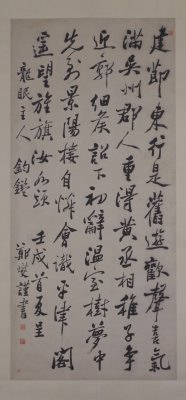 建節東行是舊遊歡聲喜氣
滿吳州郡人重得黃丞相稚子爭
迎郭細侯詔下初辭溫室樹夢中
先到景陽樓自憐曾識平津閣
遙望旌旗汝水頭 壬戌首夏呈
龍眠主人 鈞鑒 鄭燮謹書